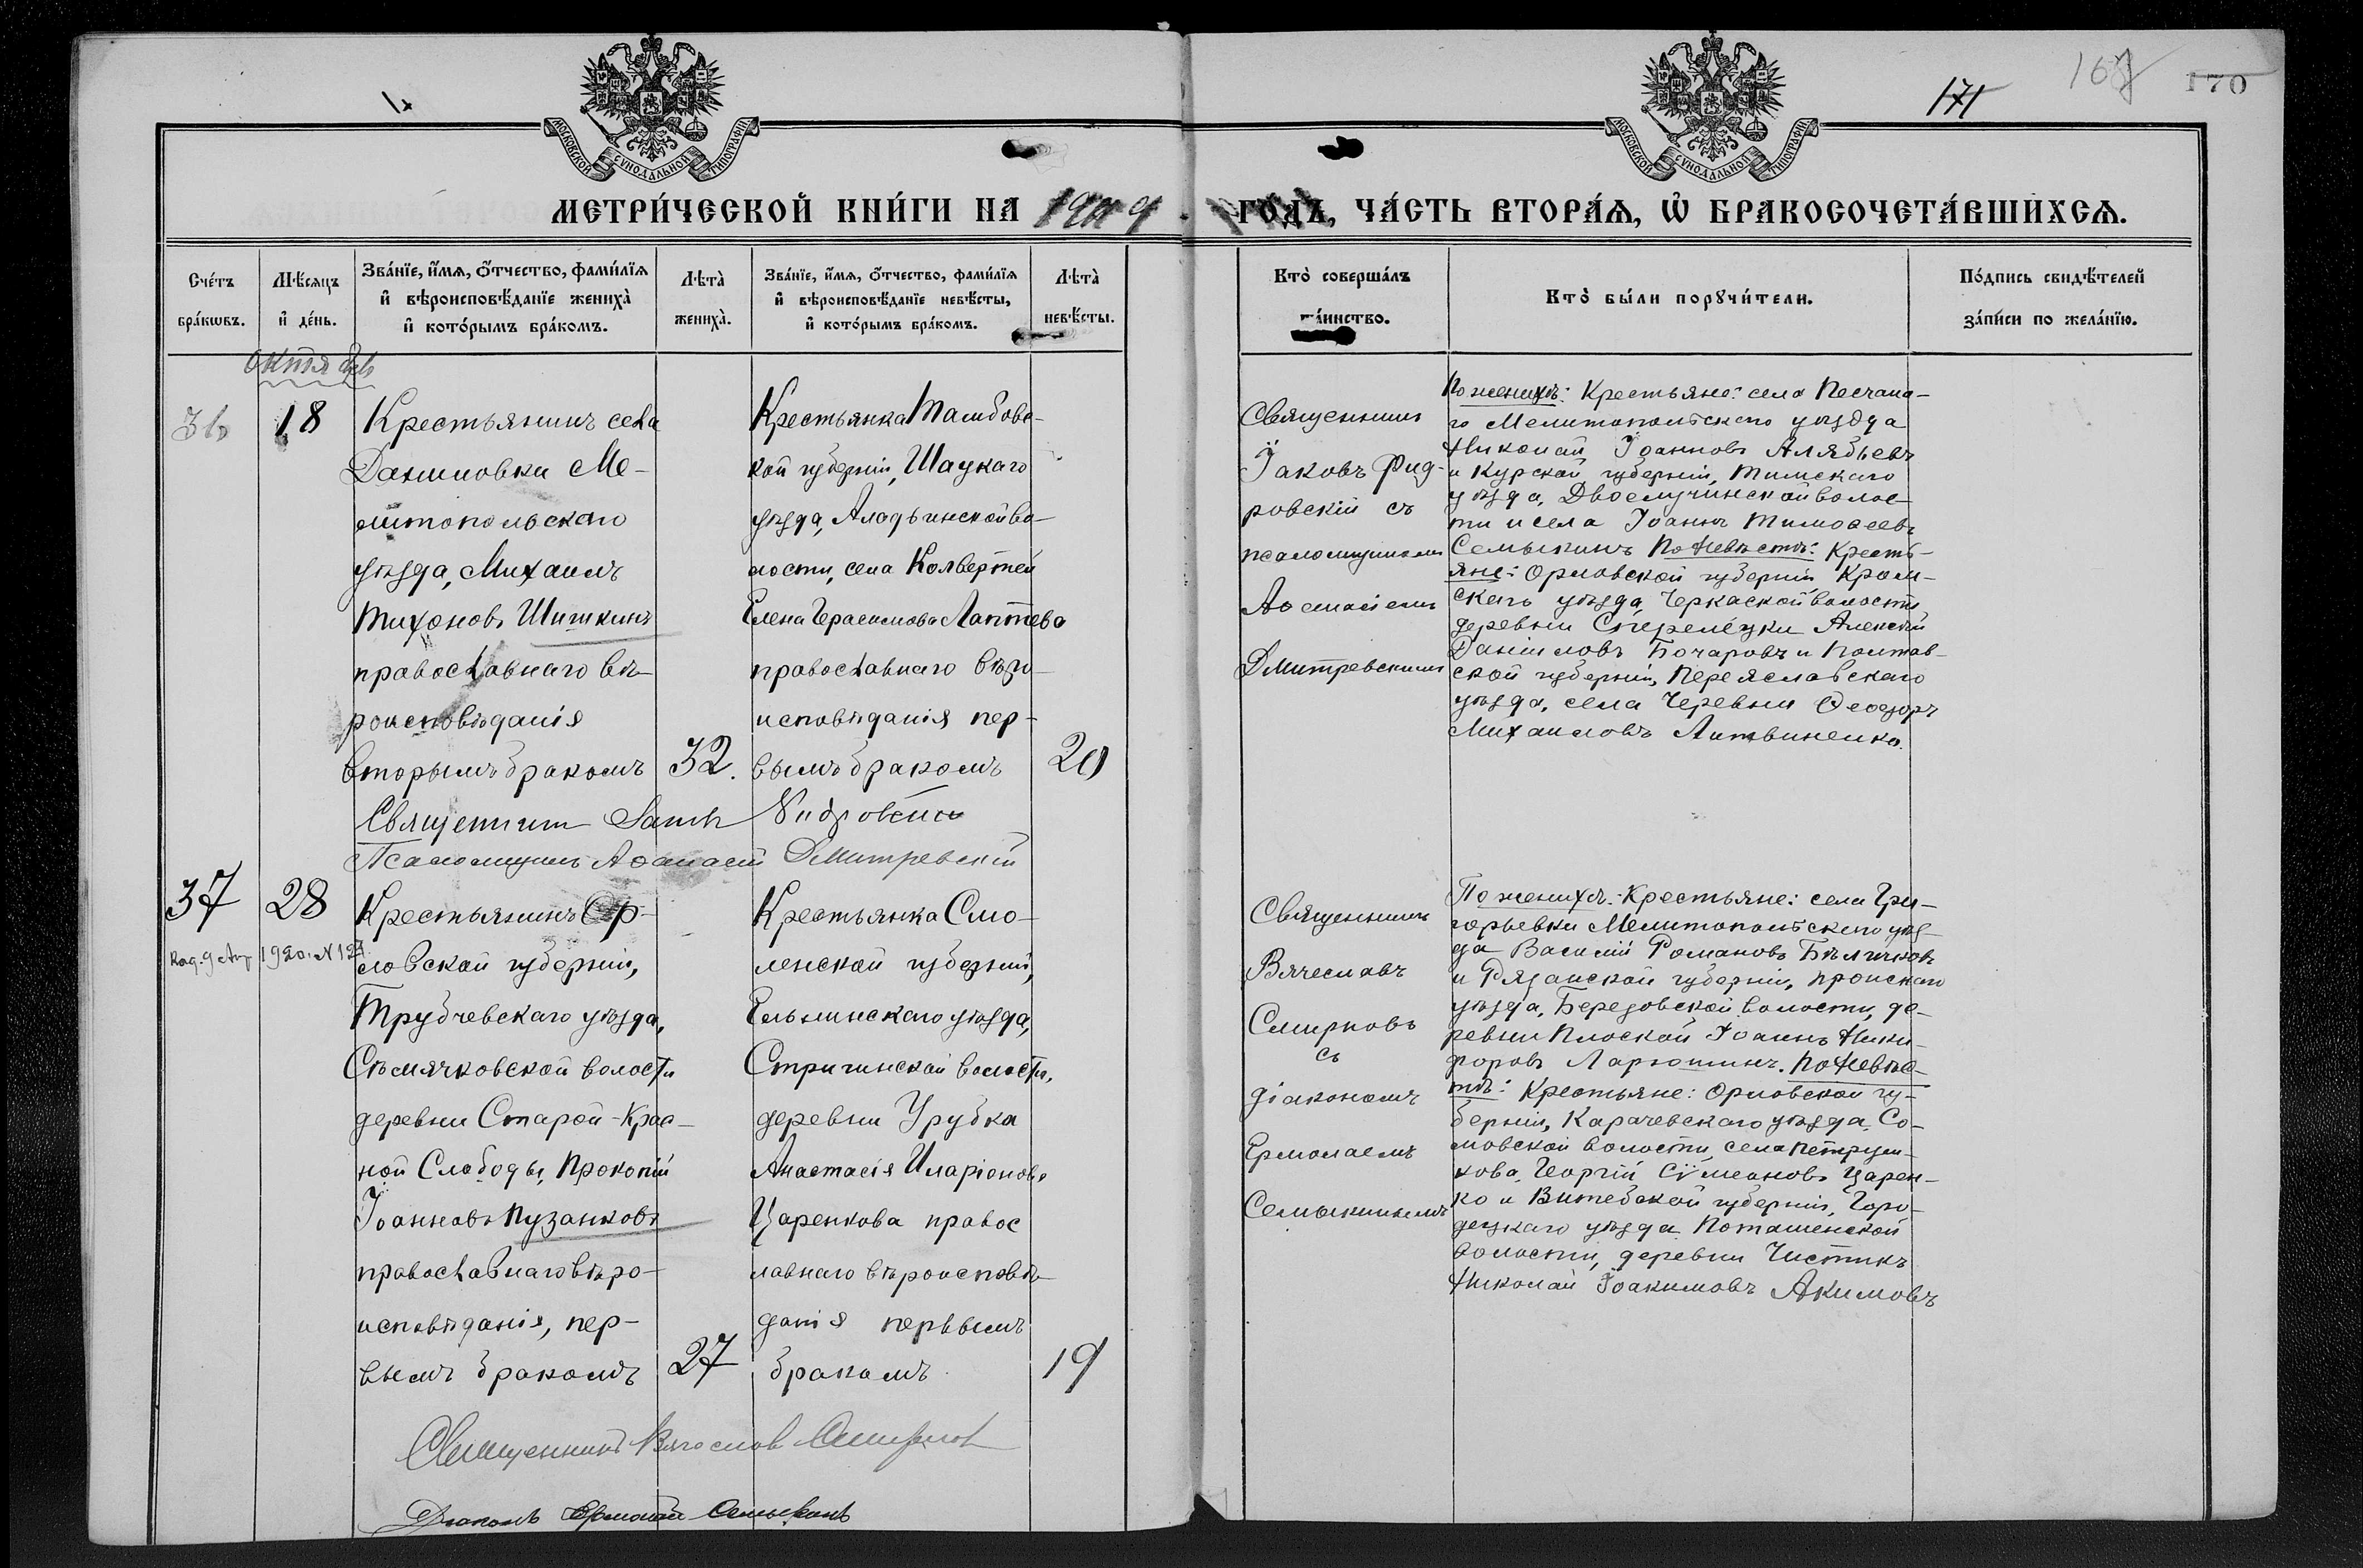 171
170
МОСКОВСКОЙ СУНОДАЛЬНОЙ ТИПОГРАФІИ
МОСКОВСКОЙ СУНОДАЛЬНОЙ ТИПОГРАФІИ
МЕТРИ́ЧЕСКОЙ КНИ́ГИ НА 1909 ГОДЪ, ЧА́СТЬ ВТОРА́Я, Ѽ БРАКОСОЧЕТА́ВШИХСЯ.
Сче́тъ бра́кѡвъ.
Мѣ́сяцъ и де́нь.
Зва́нїе, и́мя, о́тчество, фами́лїя и вѣроисповѣ́данїе жениха̀ и кото́рымъ бра́комъ.
Лѣта̀ жениха̀.
Зва́нїе, и́мя, о́тчество, фами́лїя и вѣроисповѣ́данїе невѣ́сты, и кото́рымъ бра́комъ.
Лѣта̀ невѣ́сты.
Кто̀ соверша́лъ та́инство.
Кто̀ бы́ли порꙋчи́тели.
По́дпись свидѣ́телей за́писи по жела́нїю.
Октябрь
36
18
Крестьянинъ села
Даниловки Ме-
литопольскаго
уѣзда, Михаилъ
Тихоновъ Шишкинъ
православнаго вѣ-
роисповѣданія
вторымъ бракомъ
32.
Крестьянка Тамбовс-
кой губерніи, Шацкаго
уѣзда, Аладьинской во-
лости, села Колвертей
Елена Герасимова Лаптева
православнаго вѣро-
исповѣданія пер-
вымъ бракомъ
20
Священникъ
Іаковъ Фид-
ровскій съ
псаломщикомъ
Аѳанасіемъ
Дмитревскимъ
По женихѣ: Крестьяне: села Песчана-
го Мелитопольскаго уѣзда
Николай Іоанновъ Алябьевъ
и Курской губерніи, Тимскаго
уѣзда, Двоелучинской волос-
ти и села Іоаннъ Тимоѳеевъ
Семыкинъ По Невѣстѣ: Кресть-
яне: Орловской губерніи Кром-
скаго уѣзда, Черкаской волости
деревни Стрелецки Алексѣй
Даніиловъ Бочаровъ и Полтав-
ской губерніи, Переяславскаго
уѣзда, села Черевки Ѳеодоръ
Михаиловъ Литвиненко.
Священникъ
Псаломщикъ Аѳанасій Дмитревскій
37
28
1920. N 127.
Крестьянинъ Ор-
ловской губерніи,
Трубчевскаго уѣзда,
Сѣмячковской волости
деревни Старой-Крас-
ной Слободы, Прокопій
Іоанновъ Пузанковъ
православнаго вѣро-
исповѣданія, пер-
вымъ бракомъ
27
Крестьянка Смо-
ленской губерніи,
Ельнинскаго уѣзда,
Стригинской волости,
деревни Урубка
Анастасія Иларіонова
Царенкова правос
лавнаго вѣроисповѣ-
данія первымъ
бракомъ
19
Священникъ
Вячеславъ
Смирновъ
съ
діакономъ
Ермолаемъ
Семыкинымъ
По женихѣ: Крестьяне: села Гри-
горьевки Мелитопольскаго уѣз-
да Василій Романовъ Бѣличковъ
и Рязанской губерніи, Пронскаго
уѣзда, Березовской волости, де-
ревни Плоской Іоаннъ Ники-
форовъ Ларюшинъ. По Невѣс-
тѣ: Крестьяне: Орловской гу-
берніи, Карачевскаго уѣзда, Со-
мовской волости, села Петруш-
кова, Георгій Сѵмеоновъ Царен-
ко и Витебской губерніи, Горо-
децкаго уѣзда Поташенской
волости, деревни Чистикъ
Николай Іоакимовъ Акимовъ
Священникъ Вячеслав Смирнов
Діаконъ Ермолай Семыкинъ